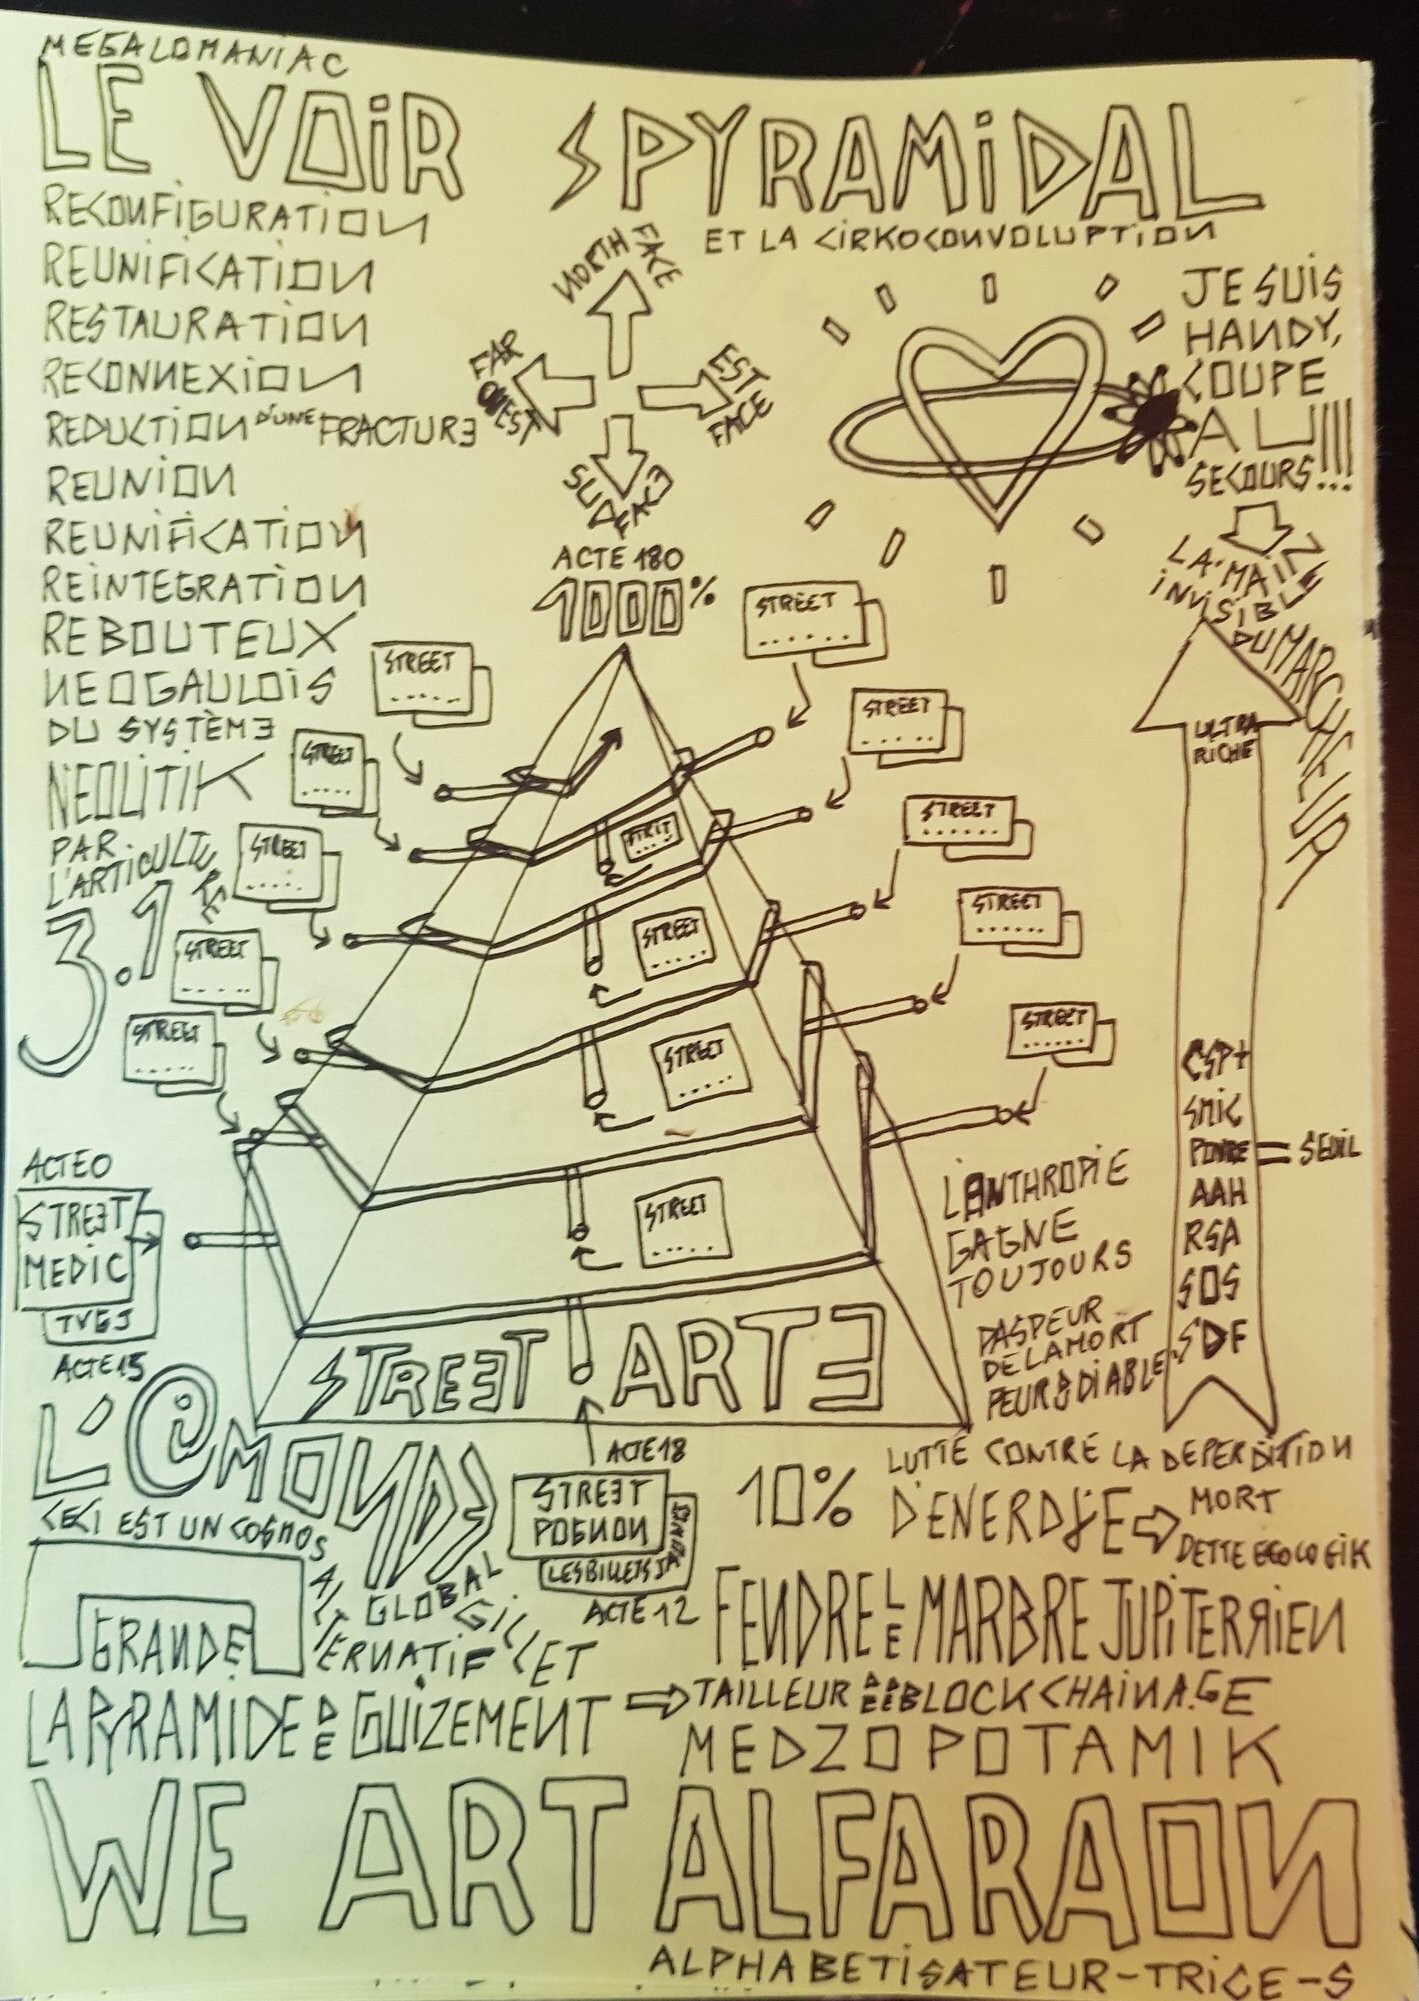 MEGALOMANIAC
LE VOIR SPYRAMIDAL
ET LA CIRKOCONVOLUPTION
RECONFIGURATION
REUNIFICATION
RESTAURATION
RECONNEXION
REDUCTION D'UNE FRACTURE
REUNION
REUNIFICATION
REINTEGRATION
REBOUTEUX
NEOGAULOIS
DU SYSTÈME
NEOLITIK
PAR
L'ARTICULTURE
3.1
NORTH FACE
FAR OUEST
EST FACE
SUD FACE
JE SUIS
HANDY,
COUPE
AU!!!
SECOURS!!!
LA MAIN
INVISIBLE
DU MARCHÉEUR
ACTE 180
1000%
STREET ......
STREET .....
STREET .....
STREET .....
STREET .....
STREET .....
STREET ......
STREET .....
STREET ......
STREET ......
STREET ......
STRIT
STREET .....
STREET .....
STREET .....
ULTRA
RICHE
CSP+
SMIC
PAUVRE = SEUIL
AAH
RSA
SOS
SDF
ACTE 0
STREET
MEDIC
TVGJ
ACTE 15
L'ANTHROPIE
GAGNE
TOUJOURS
PAS PEUR
DE LA MORT
PEUR DU DIABLE
STREET ARTE
L'@MONDE
CECI EST UN COSMOS
ALTERNATIF
GLOBAL
GILLET
ACTE 18
STREET
POGNON
LES BILLETS
ACTE 12
10%
LUTTE CONTRE LA DEPERDITION
D'ENERDJ'E
MORT
DETTE ECOLOGIK
GRANDE
FENDRE LE MARBRE JUPITERRIEN
LA PYRAMIDE DE GUIZEMENT
TAILLEUR DE BLOCKCHAINAGE
MEDZOPOTAMIK
WE ART ALFARAON
ALPHABETISATEUR-TRICE-S